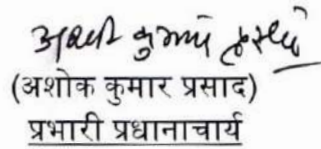 अशोक कुमार प्रसाद
(अशोक कुमार प्रसाद)
प्रभारी प्रधानाचार्य